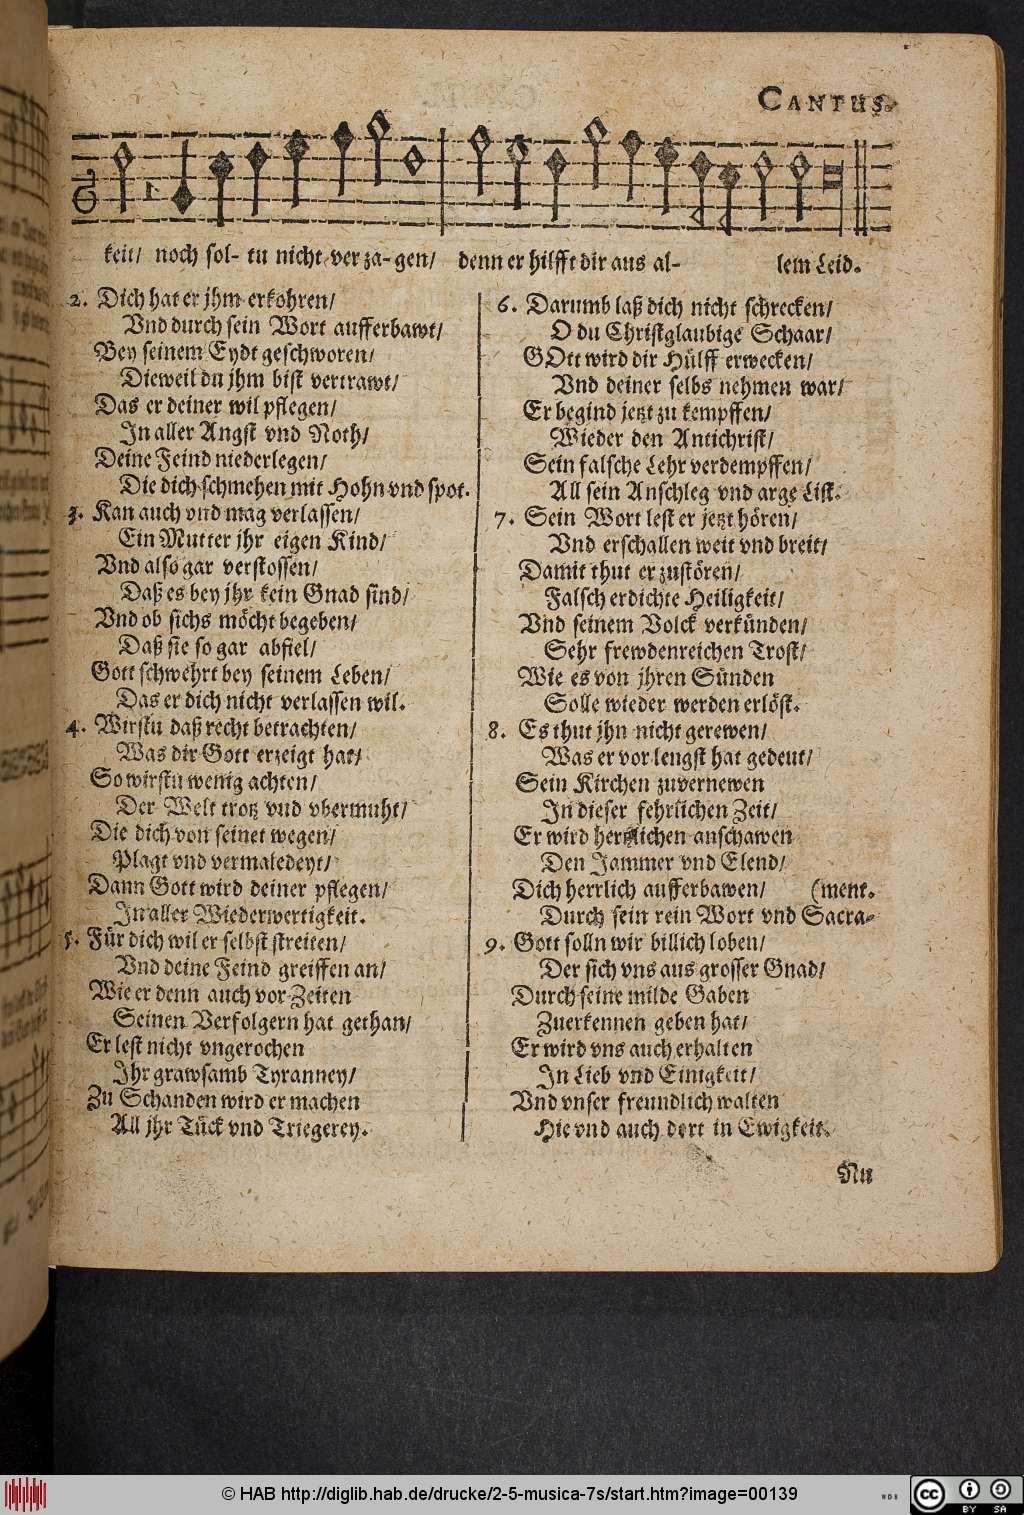 CANTUS.
keit/ noch sol- tu nicht ver za- gen/ denn er hilfft dir aus al- lem Leid.
2. Dich hat er jhm erkohren/
Vnd durch sein Wort aufferbawt/
Bey seinem Eydt geschworen/
Dieweil du jhm bist vertrawt/
Das er deiner wil pflegen/
In aller Angst vnd Noth/
Deine Feind niederlegen/
Die dich schmehen mit Hohn vnd spot.
3. Kan auch vnd mag verlassen/
Ein Mutter jhr eigen Kind/
Vnd also gar verstossen/
Daß es bey jhr kein Gnad find/
Vnd ob sichs möcht begeben/
Daß sie so gar abfiel/
Gott schwehrt bey seinem Leben/
Das er dich nicht verlassen wil.
4. Wirstu daß recht betrachten/
Was dir Gott erzeigt hat/
So wirstu wenig achten/
Der Welt trotz vnd vbermuht/
Die dich von seinet wegen/
Plagt vnd vermaledeyt/
Dann Gott wird deiner pflegen/
In aller Wiederwertigkeit.
5. Für dich wil er selbst streiten/
Vnd deine Feind greiffen an/
Wie er denn auch vor Zeiten
Seinen Verfolgern hat gethan/
Er lest nicht vngerochen
Ihr grawsamb Tyranney/
Zu Schanden wird er machen
All jhr Tück vnd Triegerey.
6. Darumb laß dich nicht schrecken/
O du Christglaubige Schaar/
GOtt wird dir Hülff erwecken/
Vnd deiner selbs nehmen war/
Er begind jetzt zu kempffen/
Wieder den Antichrist/
Sein falsche Lehr verdempffen/
All sein Anschleg vnd arge List.
7. Sein Wort lest er jetzt hören/
Vnd erschallen weit vnd breit/
Damit thut er zustören/
Falsch erdichte Heiligkeit/
Vnd seinem Volck verkünden/
Sehr frewdenreichen Trost/
Wie es von jhren Sünden
Solle wieder werden erlöst.
8. Es thut jhn nicht gerewen/
Was er vor lengst hat gedeut/
Sein Kirchen zuvernewen
In dieser fehrlichen Zeit/
Er wird hertzlichen anschawen
Den Jammer vnd Elend/
Dich herrlich aufferbawen/ (ment.
Durch sein rein Wort vnd Sacra-
9. Gott solln wir billich loben/
Der sich vns aus grosser Gnad/
Durch seine milde Gaben
Zuerkennen geben hat/
Er wird vns auch erhalten
In Lieb vnd Einigkeit/
Vnd vnser freundlich walten
Hie vnd auch dort in Ewigkeit.
Nu
© HAB http://diglib.hab.de/drucke/2-5-musica-7s/start.htm?image=00139
WDB
cc BY SA